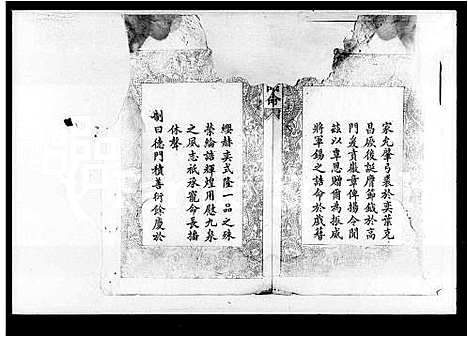 誥命
家允肇弓裘於奕葉克
昌厥後誕膺節鉞於高
門爰賁徽章俾揚令聞
茲以覃恩贈爾為振威
將軍錫之誥命於戲簪
纓赫奕式隆一品之殊
榮綸誥輝煌用慰九泉
之風志祇承寵命長播
休聲
制曰德門積善衍餘慶於